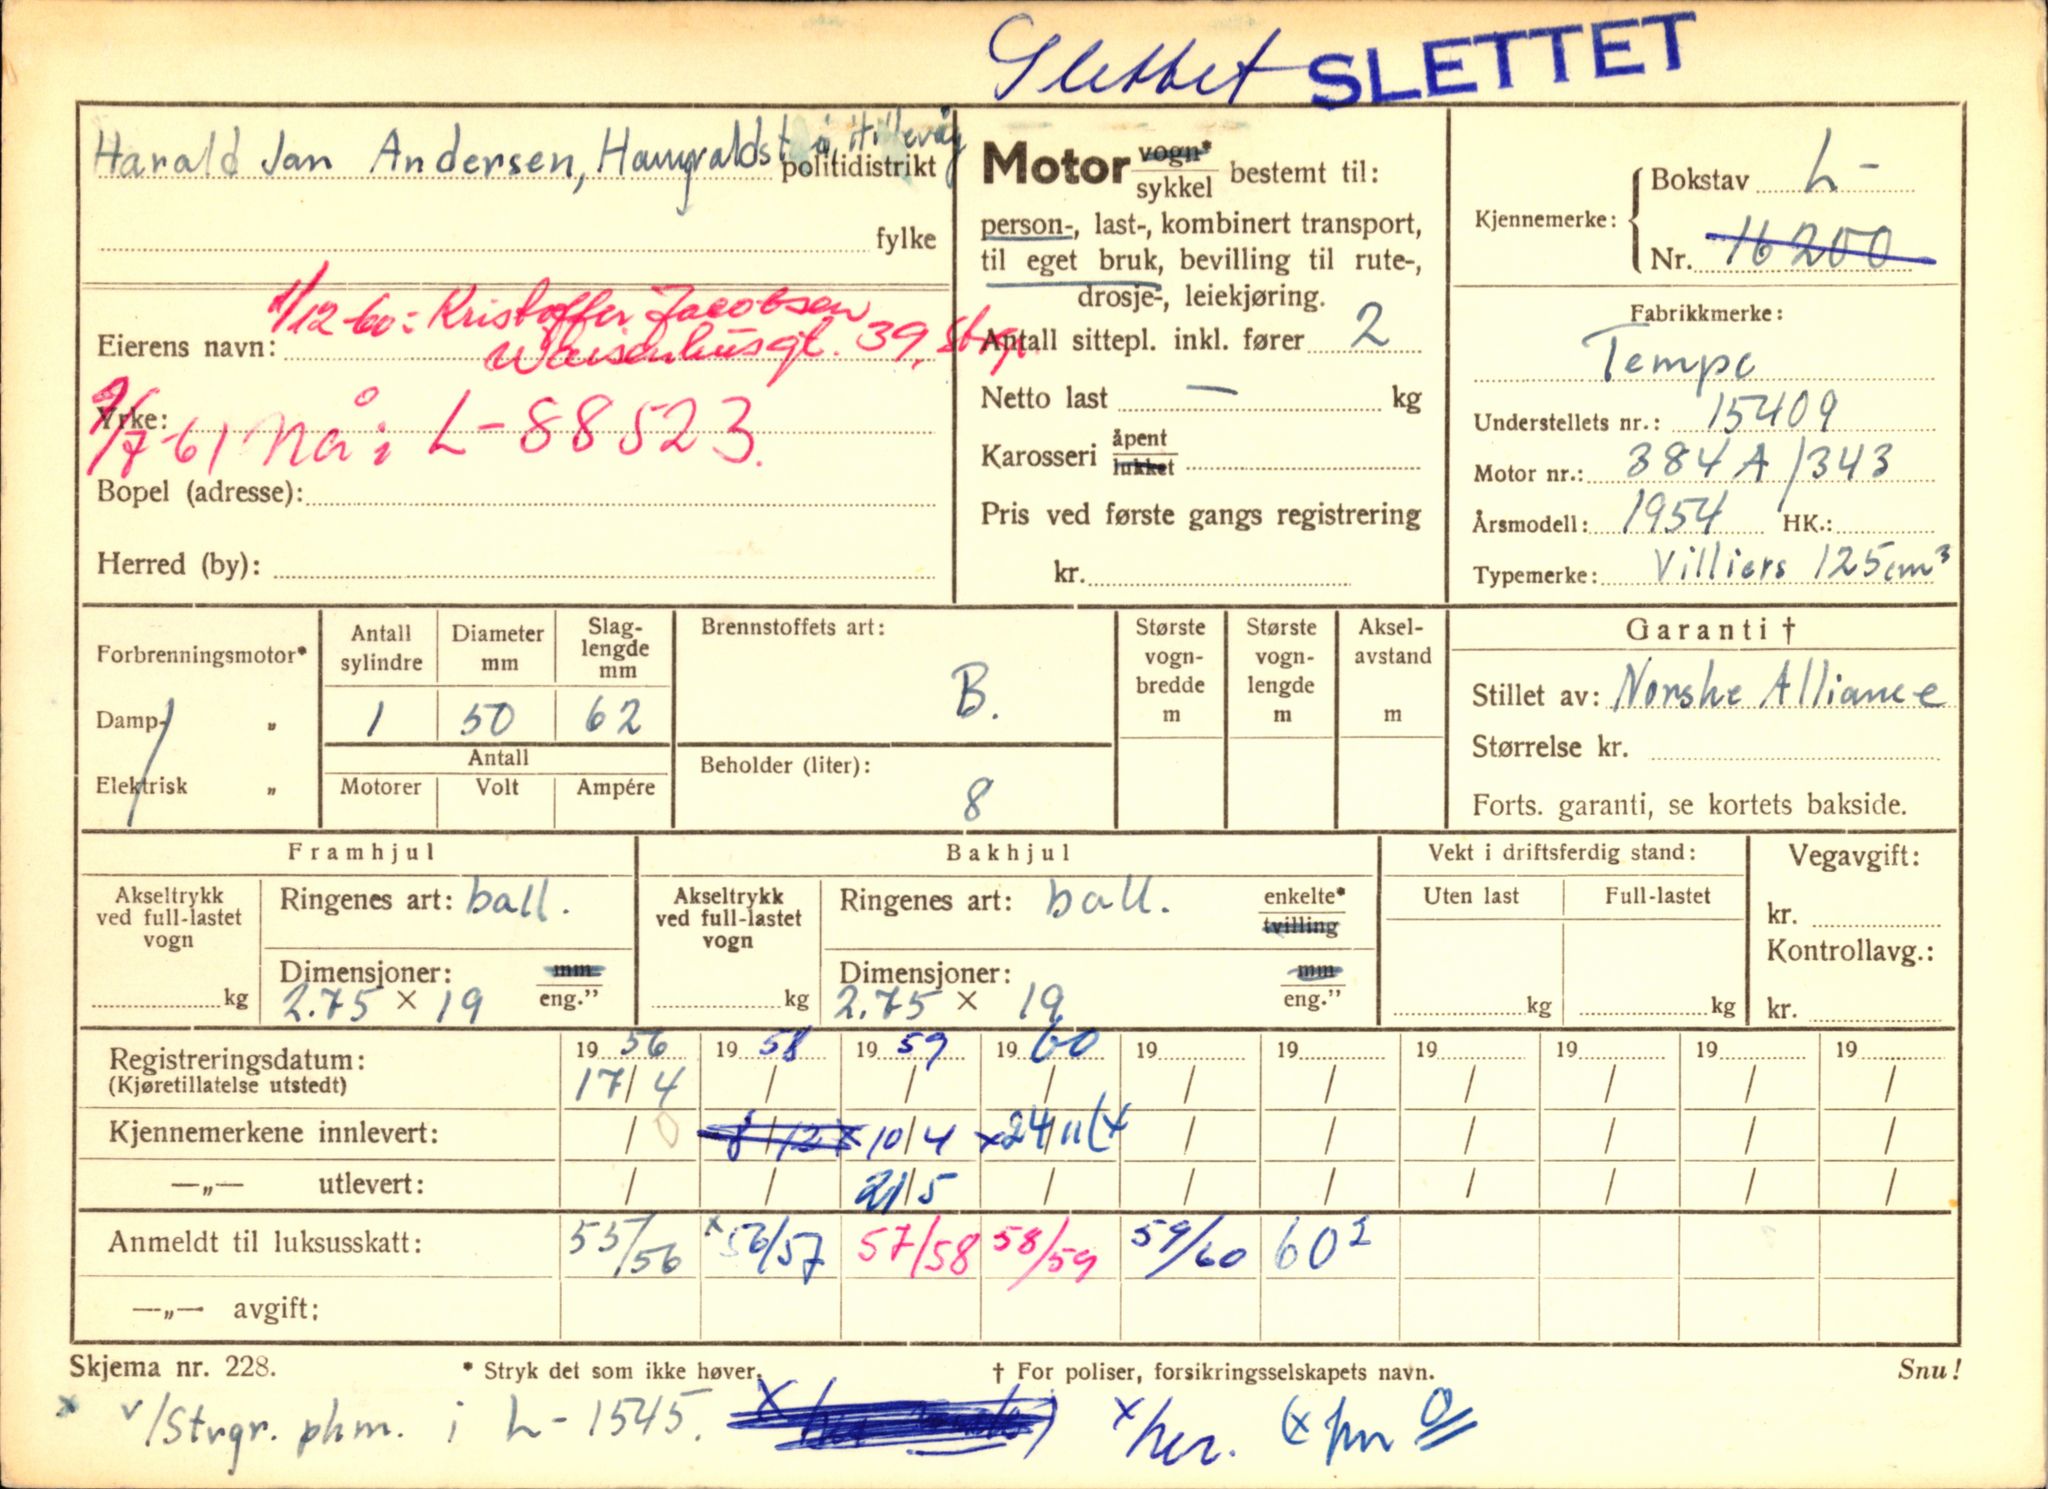 Slettet SLETTET
Harald Jan Andersen, Hillevåg politidistrikt
fylke
1/12-60: Kristoffer Jacobsen
Eierens navn: Waisenhusgt. 39, Strgr.
Yrke:
9/7-61 Nå: L-88523.
Bopel (adresse):
Herred (by):
Motor vogn* sykkel bestemt til:
person-, last-, kombinert transport,
til eget bruk, bevilling til rute-,
drosje-, leiekjøring.
Antall sittepl. inkl. fører 2
Netto last — kg
Karosseri åpent lukket
Pris ved første gangs registrering
kr.
Kjennemerke: Bokstav L-
Nr. 16200
Fabrikkmerke:
Tempo
Understellets nr.: 15409
Motor nr.: 384A/343
Årsmodell: 1954 HK.:
Typemerke: Villiers 125cm³
Forbrenningsmotor*
Damp- „
Elektrisk „
Antall sylindre 1
Diameter mm 50
Slag-lengde mm 62
Antall
Motorer Volt Ampére
Brennstoffets art: B.
Beholder (liter): 8
Største vogn-bredde m
Største vogn-lengde m
Aksel-avstand m
Garanti †
Stillet av: Norske Alliance
Størrelse kr.
Forts. garanti, se kortets bakside.
Framhjul
Akseltrykk ved full-lastet vogn kg
Ringenes art: ball.
Dimensjoner: mm
2.75 × 19 eng."
Bakhjul
Akseltrykk ved full-lastet vogn kg
Ringenes art: ball. enkelte* tvilling
Dimensjoner: mm
2.75 × 19 eng."
Vekt i driftsferdig stand:
Uten last Full-lastet
kg kg
Vegavgift:
kr.
Kontrollavg.:
kr.
Registreringsdatum: 1956 1958 1959 1960 19 19 19 19 19 19
(Kjøretillatelse utstedt) 17/4 / / / / / / / / /
Kjennemerkene innlevert: / 8/12 x 10/4 x24/11(x / / / / / /
—„— utlevert: / / 21/5 / / / / / / /
Anmeldt til luksusskatt: 55/56 x56/57 57/58 58/59 59/60 60²
—„— avgift:
Skjema nr. 228. * Stryk det som ikke høver. † For poliser, forsikringsselskapets navn. Snu!
x v/Strgr. phm. i L-1545. x her. (x